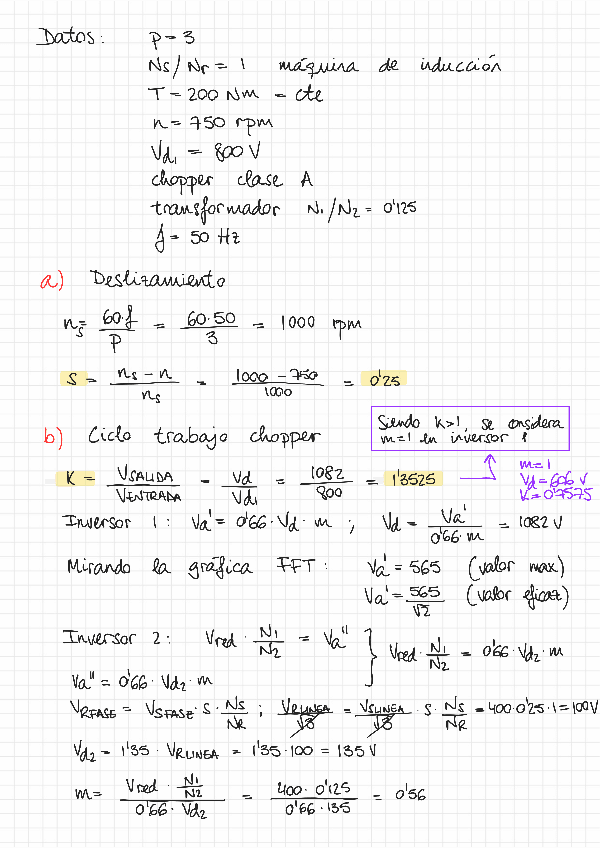 Datos: P = 3
Ns/Nr = 1 máquina de inducción
T = 200 Nm = cte
n = 750 rpm
Vd₁ = 800 V
chopper clase A
transformador N₁/N₂ = 0'125
f = 50 Hz
a) Deslizamiento
nₛ = 60·f / P = 60·50 / 3 = 1000 rpm
S = nₛ - n / nₛ = 1000 - 750 / 1000 = 0'25
Siendo k>1, se considera
m=1 en inversor 1
b) Ciclo trabajo chopper
m=1
Vd = 606 V
K = 0'7575
K = VSALIDA / VENTRADA = Vd / Vd₁ = 1082 / 800 = 1'3525
Inversor 1: Va' = 0'66 · Vd · m ; Vd = Va' / 0'66·m = 1082 V
Mirando la gráfica FFT: Va' = 565 (valor max)
Va' = 565 / √2 (valor eficaz)
Inversor 2: Vred · N₁/N₂ = Va'' } Vred · N₁/N₂ = 0'66 · Vd₂ · m
Va'' = 0'66 · Vd₂ · m
VRFASE = VSFASE · S · NS/NR ; VRLINEA/√3 = VSLINEA/√3 · S · NS/NR = 400·0'25·1 = 100V
Vd₂ = 1'35 · VRLINEA = 1'35 · 100 = 135 V
m = Vred · N₁/N₂ / 0'66 · Vd₂ = 400 · 0'125 / 0'66 · 135 = 0'56